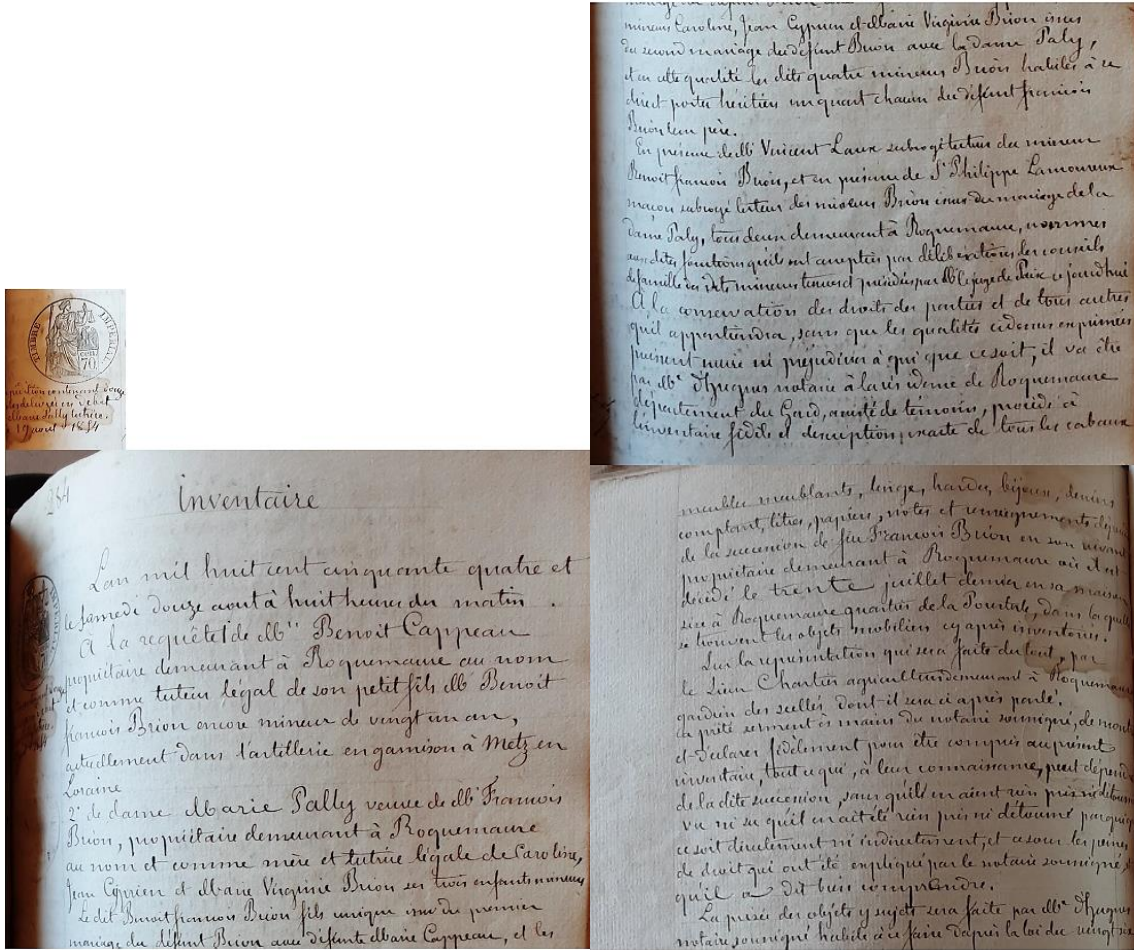 TIMBRE IMPÉRIAL
70
19 aout 1854
Inventaire
L'an mil huit cent cinquante quatre et
le samedi douze aout à huit heures du matin.
A la requête de Mr Benoit Cappeau
propriétaire demeurant à Roquemaure au nom
et comme tuteur légal de son petit fils Mr Benoit
françois Brion encore mineur de vingt un an,
actuellement dans l'artillerie en garnison à Metz en
Loraine
2° de dame Marie Pally veuve de Mr François
Brion, propriétaire demeurant à Roquemaure
au nom et comme mère et tutrice légale de Caroline,
Jean Cyprien et Marie Virginie Brion ses trois enfants mineurs
Le dit Benoit françois Brion fils unique issu du premier
mariage du défunt Brion avec défunte Marie Cappeau, et les
mineurs Caroline, Jean Cyprien et Marie Virginie Brion issus
du second mariage du défunt Brion avec la dame Paly,
et en cette qualité les dits quatre mineurs Brion habiles à se
dire et porter héritiers un quart chacun du défunt françois
Brion leur père.
En présence de Mr Vincent Laux subrogé tuteur du mineur
Benoit françois Brion, et en présence de Sr Philippe Lamoureux
maçon subrogé tuteur des mineurs Brion issus du mariage de la
dame Paly, tous deux demeurant à Roquemaure, nommés
aux dites fonctions qu'ils ont acceptés par délibérations des conseils
de famille des dits mineurs tenus et présidés par Mr le juge de Paix ce jourd'hui
A la conservation des droits des parties et de tous autres
qu'il appartiendra, sans que les qualités cidessus exprimées
puissent nuire ni préjudicier à qui que ce soit, il va être
par Me d'Hugues notaire à la résidence de Roquemaure
département du Gard, assisté de témoins, procédé à
l'inventaire fidèle et description exacte de tous les cabaux
meubles meublants, linge, hardes, bijoux, deniers
comptant, titres, papiers, notes et renseignements
de la succession de feu François Brion en son vivant
propriétaire demeurant à Roquemaure où il est
décédé le trente juillet dernier en sa maison
sise à Roquemaure quartier de la Pourtale, dans laquelle
se trouvent les objets mobiliers cy après inventoriés.
Sur la représentation qui sera faite du tout, par
le Sieur Chartier agriculteur demeurant à Roquemaure
gardien des scellés dont il sera ci après parlé.
a prêté serment ès mains du notaire soussigné, de
et déclarer fidèlement pour être compris au présent
inventaire, tout ce qui, à leur connaissance, peut dépendre
de la dite succession, sans qu'ils en aient rien pris ni détourné
vu ni su qu'il en ait été rien pris ni détourné par qui que
ce soit directement ni indirectement, et ce sous les peines
de droit qui ont été expliqué par le notaire soussigné,
qu'il a dit bien comprendre.
La prisée des objets y sujets sera faite par Me d'Hugues
notaire soussigné habile à ce faire d'après la loi du vingt six